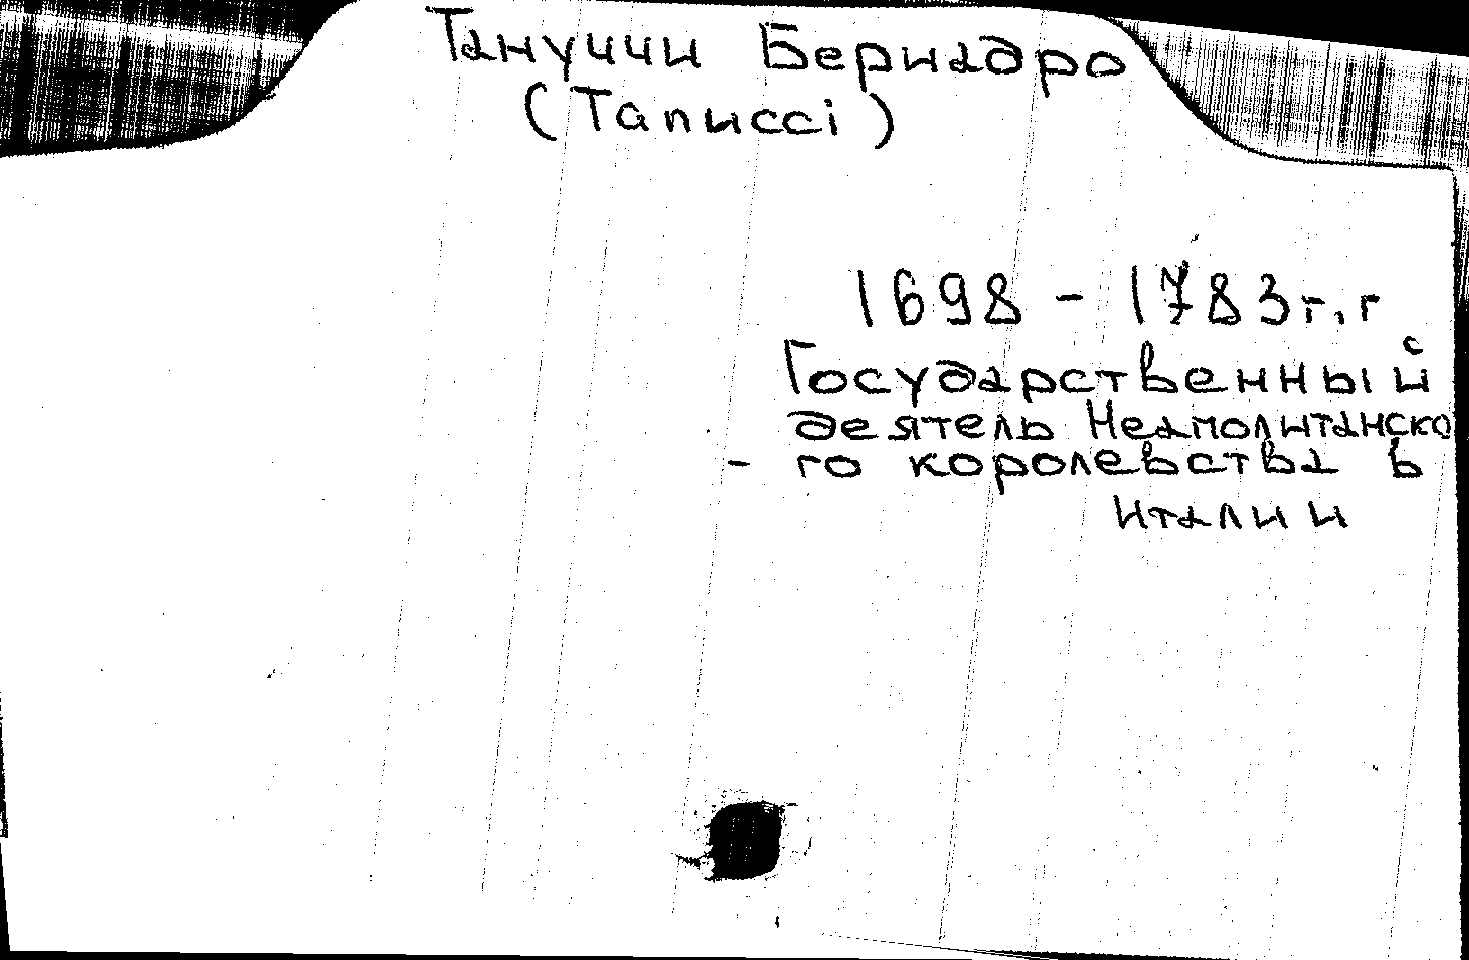 Тануччи Бернадро
(Tanucci)
1698 - 1783 г.г
Государственный
деятель Неаполитанско
- го королевства в
Италии